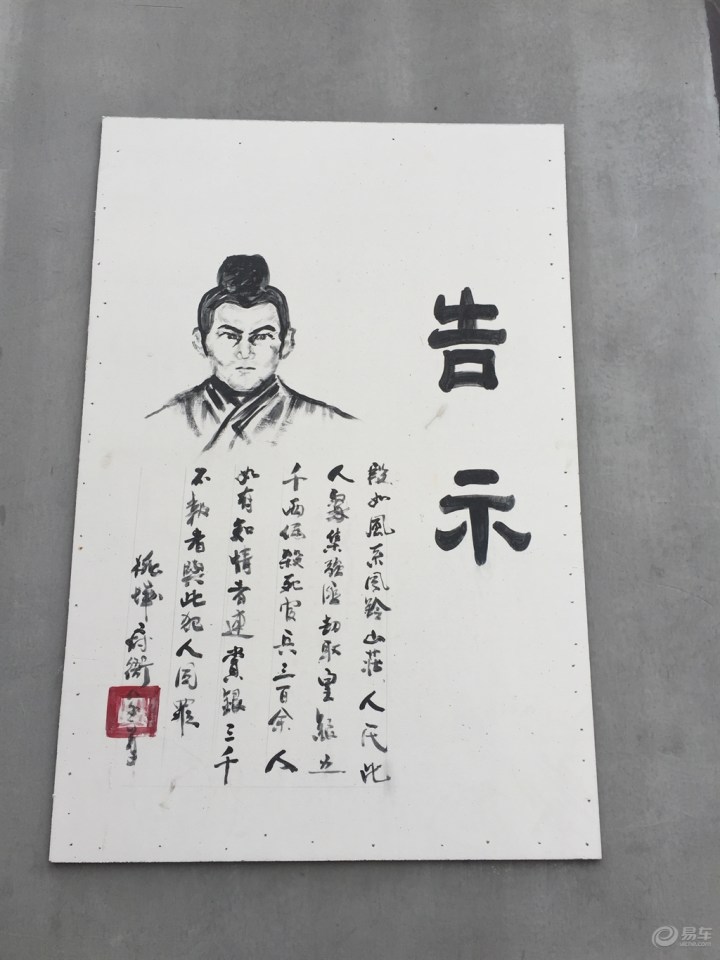 告示
段如風系風鈴山莊人氏此
人募集強盜劫取皇銀五
千両伍殺死官兵三百余人
如有知情者連賞銀三千
不報者與此犯人同罪
府衙
易车
yiche.com